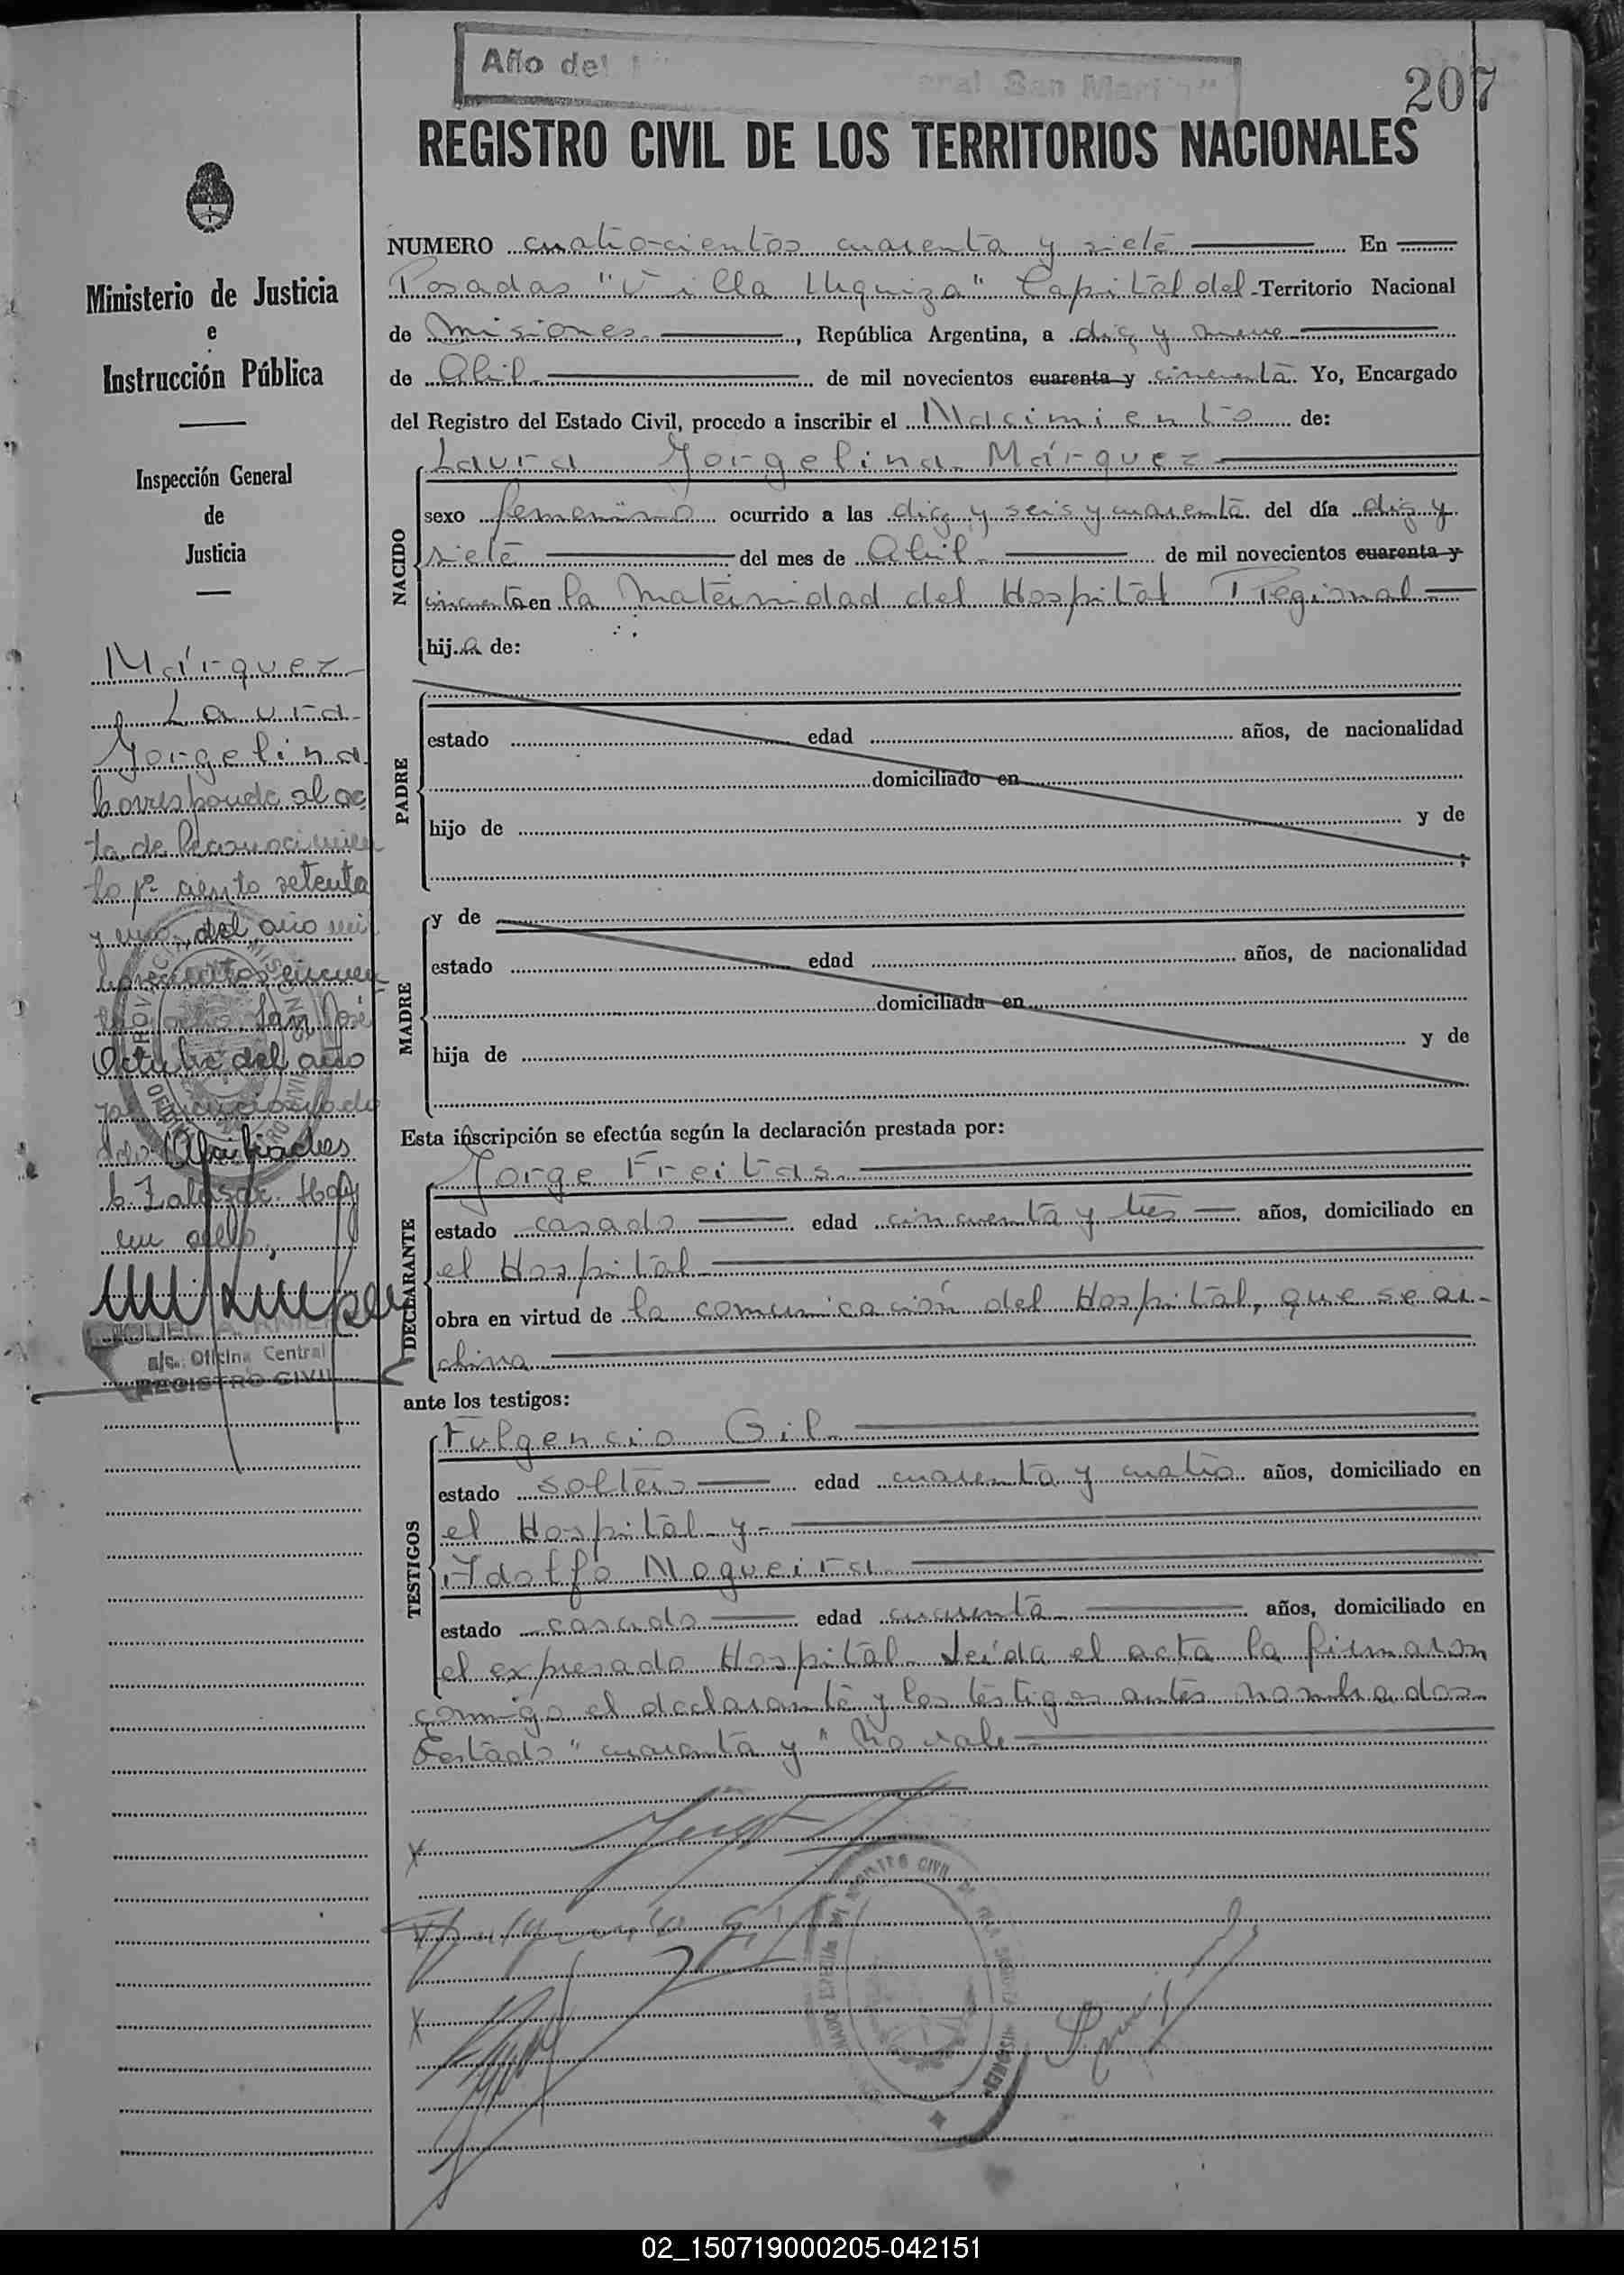 Año del
eral San Martín"
207
REGISTRO CIVIL DE LOS TERRITORIOS NACIONALES
Ministerio de Justicia
e
Instrucción Pública
Inspección General
de
Justicia
Márquez
Laura
Jorgelina
Corresponde al ac
ta de Reconocimien
to nº ciento setenta
y uno, del año mil
novecientos cincuen
San José
Octubre del año
Oficina Central
REGISTRO CIVIL
NUMERO cuatrocientos cuarenta y siete En
Posadas "Villa Urquiza" Capital del Territorio Nacional
de Misiones, República Argentina, a diez y nueve
de Abril de mil novecientos cuarenta y cincuenta. Yo, Encargado
del Registro del Estado Civil, procedo a inscribir el Nacimiento de:
NACIDO
Laura Jorgelina Márquez
sexo femenino ocurrido a las diez y seis y cuarenta del día diez y
siete del mes de Abril de mil novecientos cuarenta y
cincuenta en la Maternidad del Hospital Regional
hija de:
PADRE
estado edad años, de nacionalidad
domiciliado en
hijo de y de
;
MADRE
y de
estado edad años, de nacionalidad
domiciliada en
hija de y de
Esta inscripción se efectúa según la declaración prestada por:
DECLARANTE
Jorge Freitas
estado casado edad cincuenta y tres años, domiciliado en
el Hospital
obra en virtud de la comunicación del Hospital, que se ar-
chiva
ante los testigos:
TESTIGOS
Fulgencio Gil
estado soltero edad cuarenta y cuatro años, domiciliado en
el Hospital y
Adolfo Nogueira
estado casado edad cuarenta años, domiciliado en
el expresado Hospital. Leída el acta la firmaron
conmigo el declarante y los testigos antes nombrados.
Testado "cuarenta y" No vale
Fulgencio Gil
02_150719000205-042151